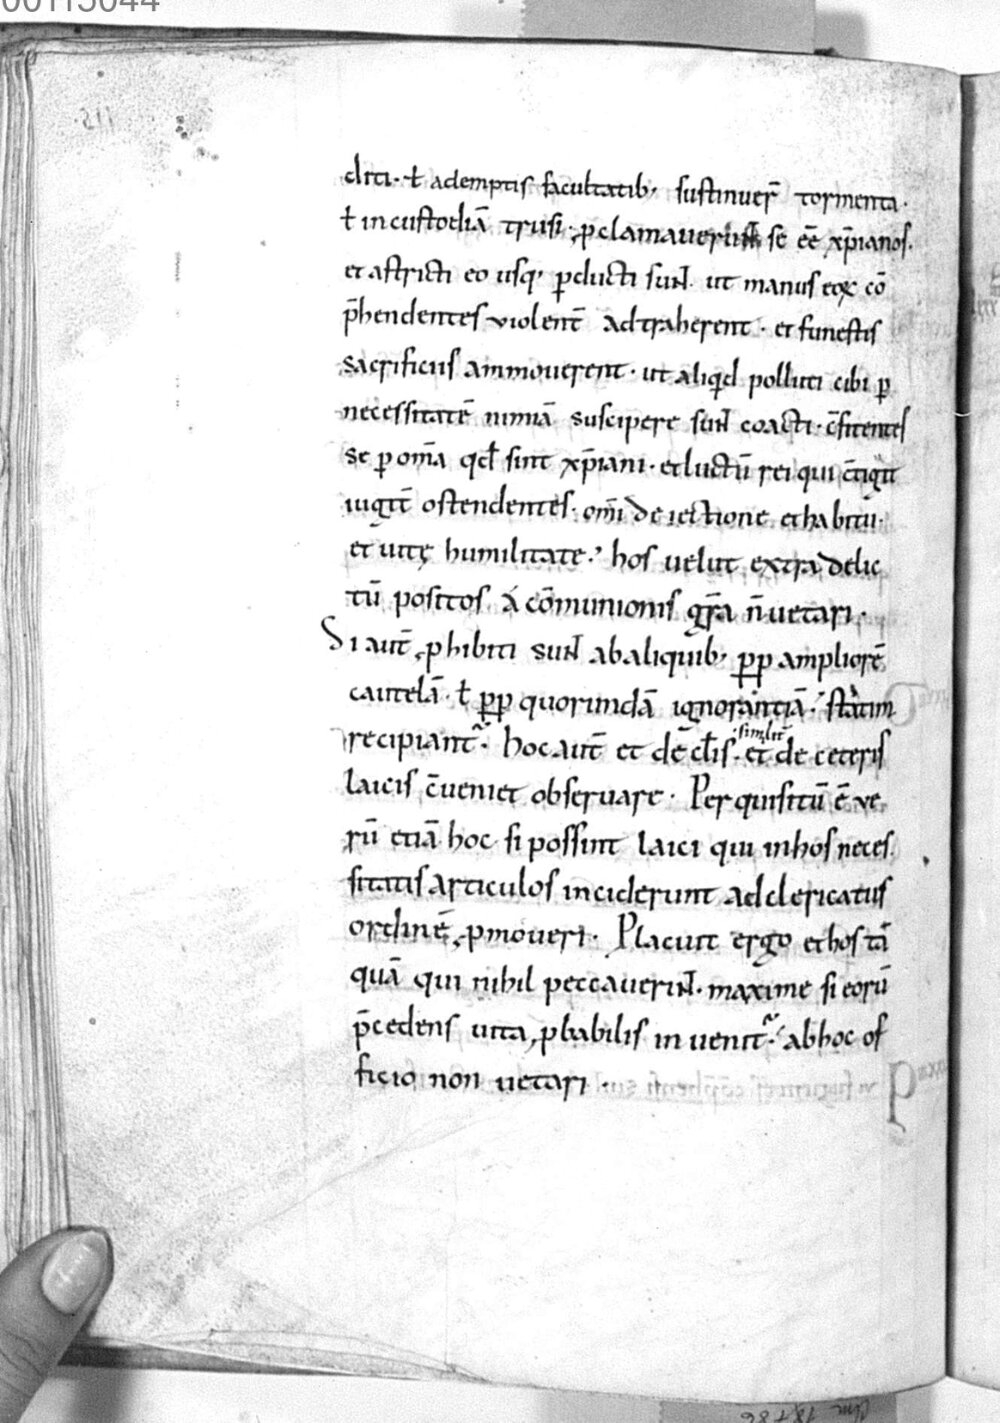 00115044
diti· ł ademptis facultatib; sustinuer̄ tormenta·
ł in custodiā trusi· ꝓclamauerunt se ēē xp̄ianos·
et astricti eo usq; ꝑducti sunt· ut manus eoꝝ cō
p̄hendentes violent̄ adtraherent· et funestis
sacrificiis ammouerent· ut aliqid polluti cibi ꝑ
necessitatē nimiā suscipere sunt coacti· c̄fitentes
se ꝑ om̄a qd̄ sint xp̄iani· et luctū rei qui c̄tigit
iugit̄ ostendentes· om̄i deiectione et habitu·
et uitę humilitate· hos velut extra delic
tū positos· á cōmunionis gr̄a n̄ uetari·
Si aut̄ ꝓhibiti sunt ab aliquib; ꝓp ampliorē
cautelā· ł ꝓp quorundā ignorantiā· statim
recipiant᷑· hoc aut̄ et de cl̄is· simlit̄ et de ceteris
laicis c̄ueniet obseruare· Perquisitū ē ve
rū etiā hoc si possint laici qui in hos neces
sitatis articulos inciderunt ad clericatus
ordinē ꝓmoueri· Placuit ergo et hos tā
quā qui nihil peccauerint· maxime si eorū
p̄cedens uita ꝓbabilis inuenit᷑· ab hoc of
ficio non uetari·